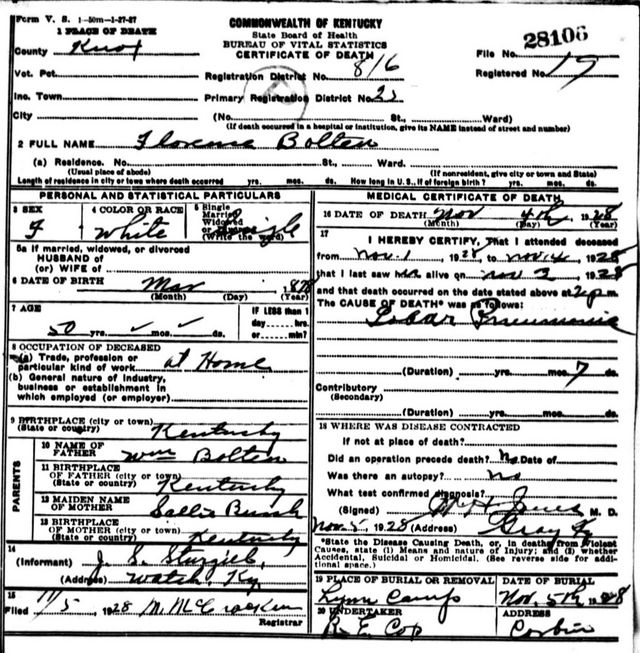 Form V. S. 1-50m-1-27-27
1 PLACE OF DEATH
County Knox
Vot. Pct.
Inc. Town
City
COMMONWEALTH OF KENTUCKY
State Board of Health
BUREAU OF VITAL STATISTICS
CERTIFICATE OF DEATH
Registration District No. 816
Primary Registration District No.
(No. St., Ward)
(If death occurred in a hospital or institution, give its NAME instead of street and number)
28106
File No.
Registered No. 19
2 FULL NAME Florence Bolten
(a) Residence. No. St., Ward.
(Usual place of abode) (If nonresident, give city or town and State)
Length of residence in city or town where death occurred yrs. mos. ds. How long in U. S., if of foreign birth? yrs. mos. ds.
PERSONAL AND STATISTICAL PARTICULARS
3 SEX F
4 COLOR OR RACE White
5 Single Married Widowed or Divorced (Write the word) Single
5a If married, widowed, or divorced
HUSBAND of
(or) WIFE of
6 DATE OF BIRTH Mar 1878
(Month) (Day) (Year)
7 AGE
50 yrs. mos. ds.
IF LESS than 1
day hrs.
or min.?
8 OCCUPATION OF DECEASED
(a) Trade, profession or
particular kind of work at Home
(b) General nature of Industry,
business or establishment in
which employed (or employer)
9 BIRTHPLACE (city or town)
(State or country) Kentucky
PARENTS
10 NAME OF
FATHER Wm Bolten
11 BIRTHPLACE
OF FATHER (city or town)
(State or country) Kentucky
12 MAIDEN NAME
OF MOTHER Sallie
13 BIRTHPLACE
OF MOTHER (city or town)
(State or country) Kentucky
14
(Informant) J. S.
(Address) Watch, Ky
15
Filed 11/5 1928 M. McCracken
Registrar
MEDICAL CERTIFICATE OF DEATH
16 DATE OF DEATH Nov 4th 1928
(Month) (Day) (Year)
17
I HEREBY CERTIFY, That I attended deceased
from Nov. 1, 1928, to Nov. 4, 1928
that I last saw her alive on Nov 3, 1928
and that death occurred on the date stated above at 2 p m.
The CAUSE OF DEATH* was as follows:
Lobar Pneumonia
(Duration) yrs. mos. 7 ds.
Contributory
(Secondary)
(Duration) yrs. mos. ds.
18 WHERE WAS DISEASE CONTRACTED
If not at place of death?
Did an operation precede death? No Date of
Was there an autopsy? no
What test confirmed diagnosis?
(Signed) W. H. Jones M. D.
Nov. 5, 1928 (Address) Gray Ky
*State the Disease Causing Death, or, in deaths from Violent
Causes, state (1) Means and nature of Injury; and (2) whether
Accidental, Suicidal or Homicidal. (See reverse side for addi-
tional space.)
19 PLACE OF BURIAL OR REMOVAL
Lynn Camp
DATE OF BURIAL
Nov. 5th 1928
20 UNDERTAKER
R. E. Cop
Address
Corbin